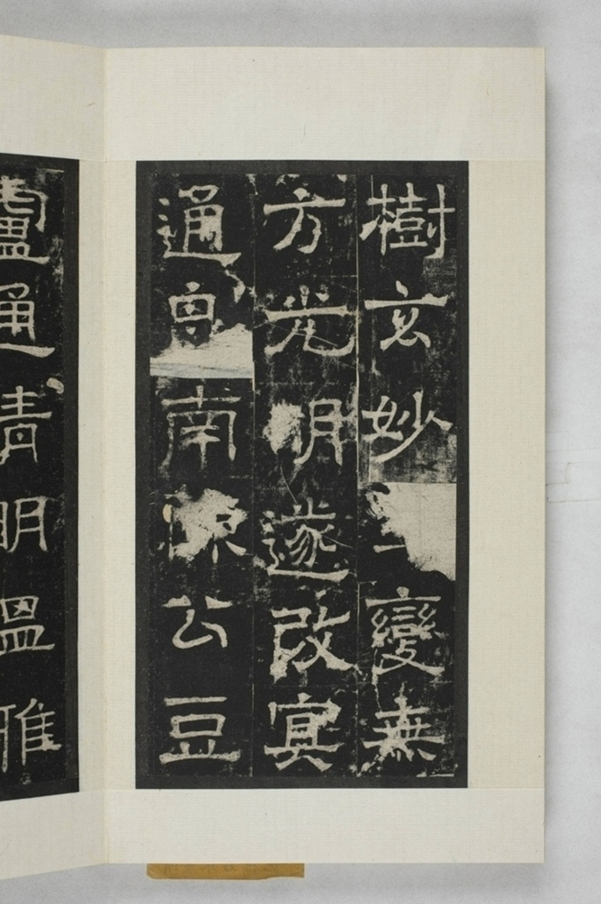 樹玄妙變無
方光明遂改寘
通南陳公豆
盧通清明溫雅